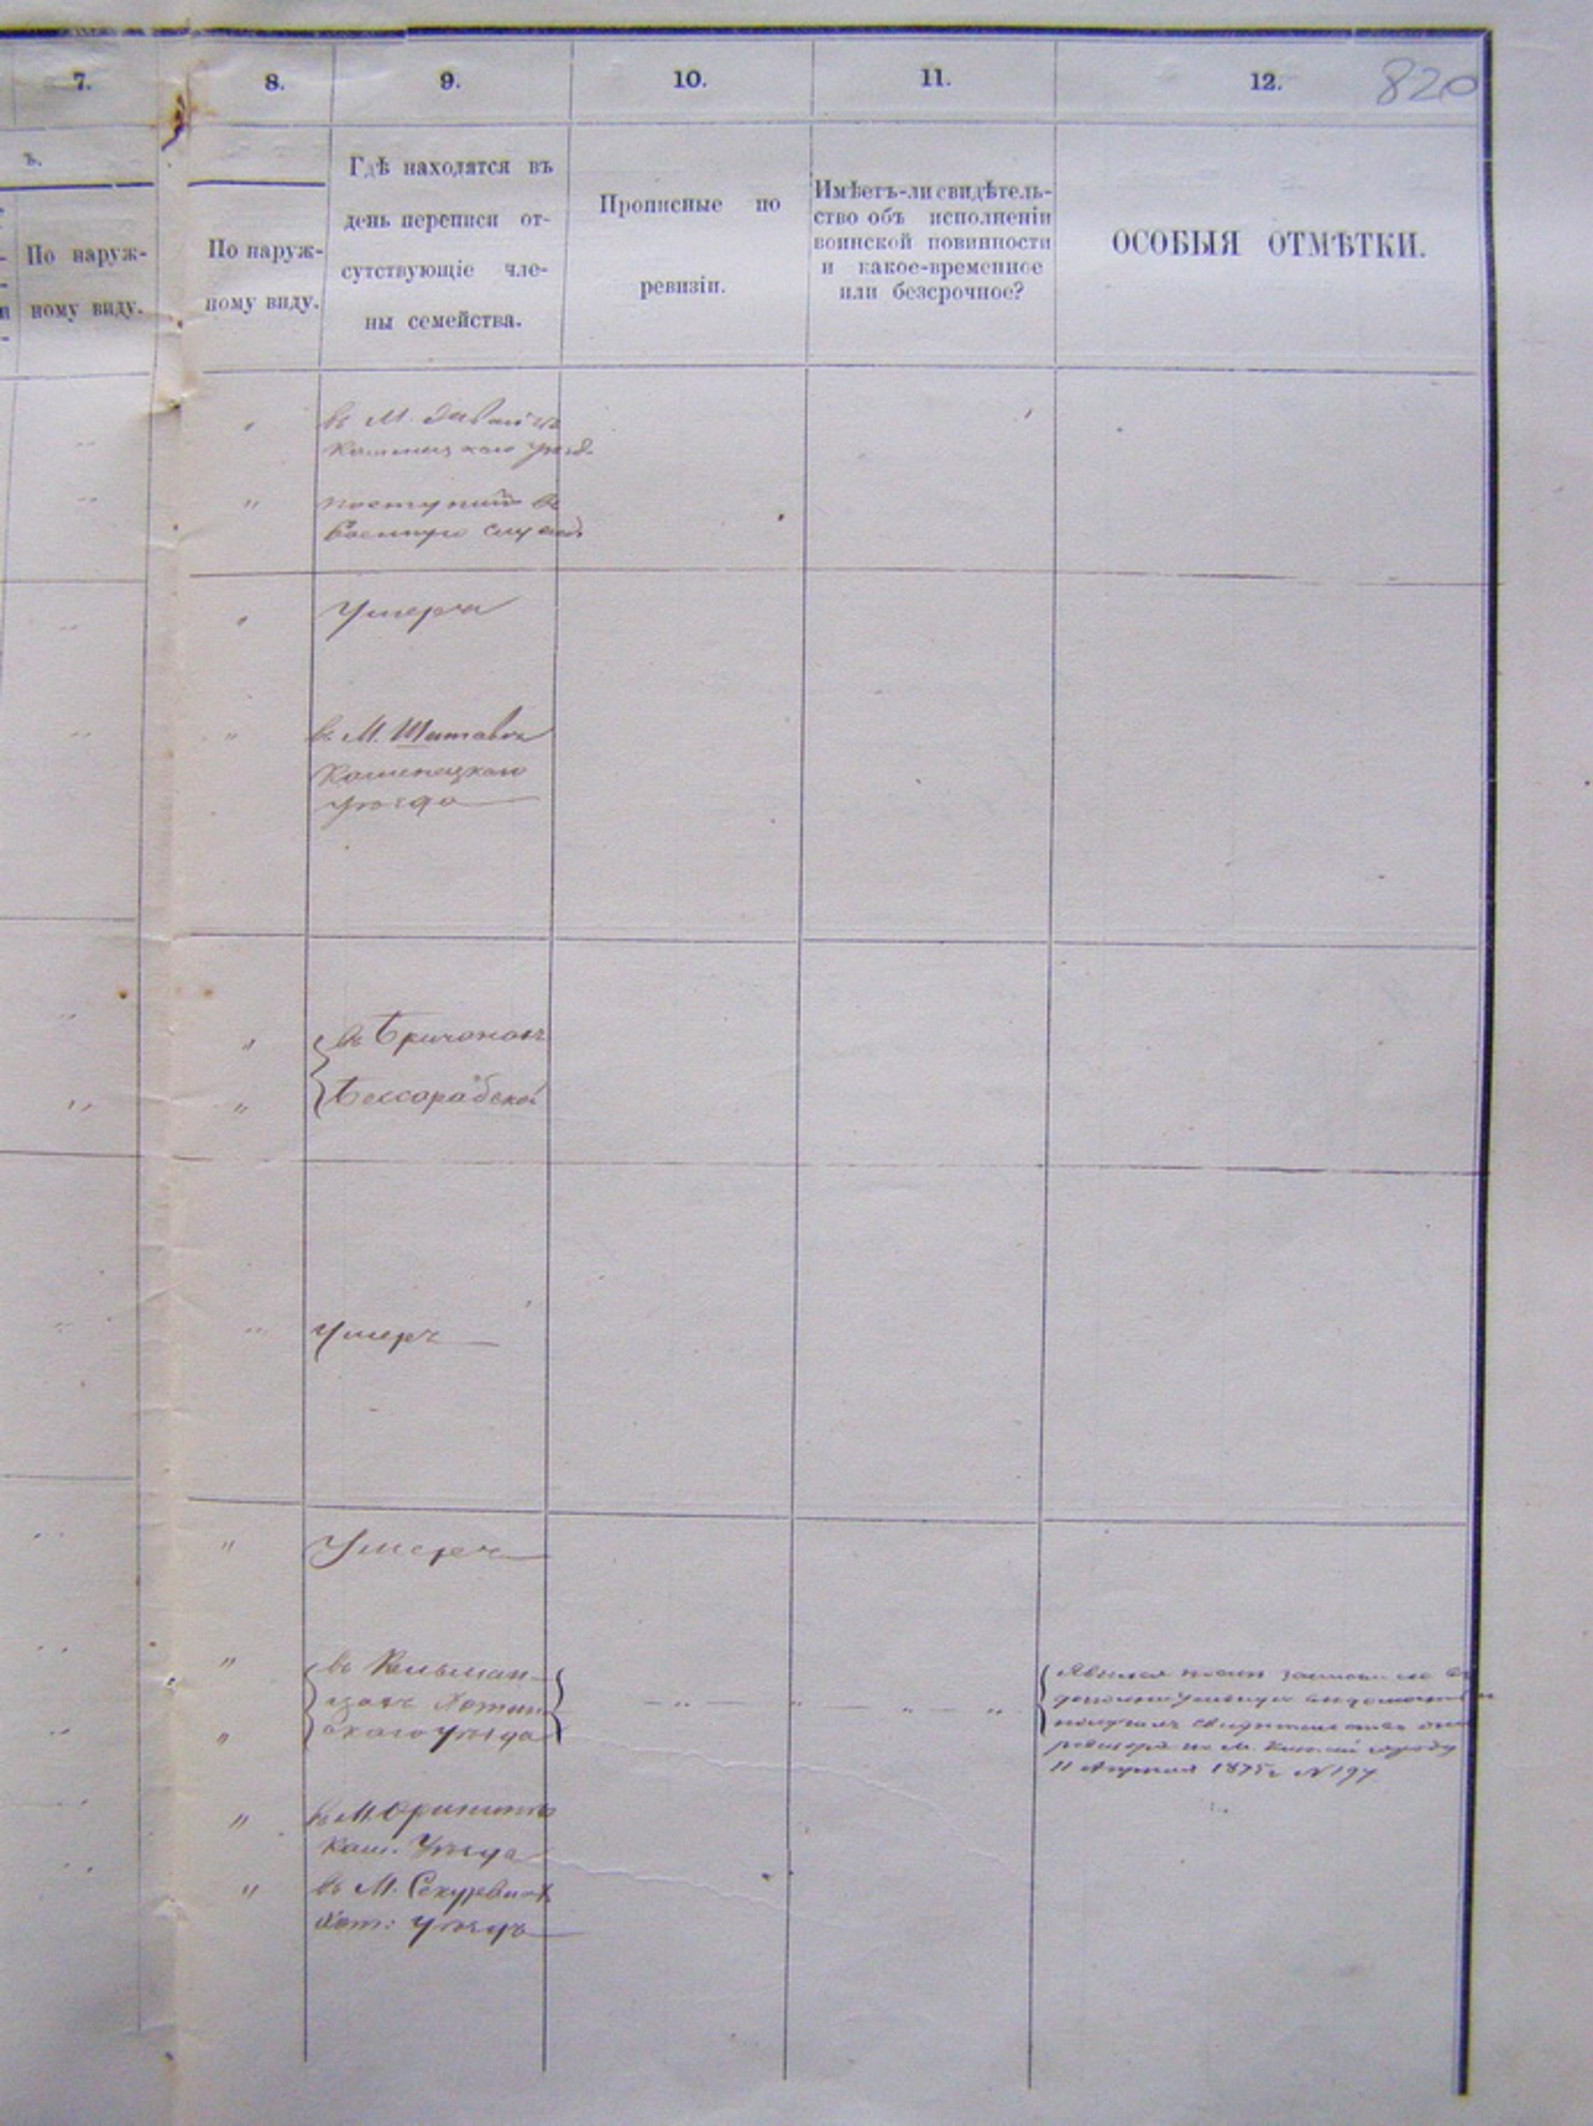 7.
8.
9.
10.
11.
12.
820
ъ.
По наруж-
ному виду.
По наруж-
ному виду.
Гдѣ находятся въ
день переписи от-
сутствующіе чле-
ны семейства.
Прописные по
ревизіи.
Имѣетъ-ли свидѣтель-
ство объ исполненіи
воинской повинности
и какое-временное
или безсрочное?
ОСОБЫЯ ОТМѢТКИ.
въ М.
Каменецкаго уѣзд.
поступилъ въ
Военную
Умерла
въ М. Шатавѣ
Каменецкаго
уѣзда
въ Бричанахъ
Бессарабской
Умеръ
Умеръ
въ Кельмен-
цахъ Хотин
скаго уѣзда
11 Апреля 1875 г. № 197
въ М. Орининѣ
Кам. Уѣзда
въ М. Секурянахъ
Хот: уѣзда